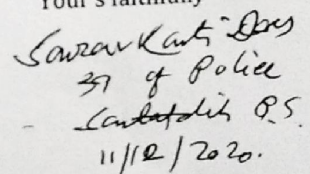 Your's faithfully
Sourav Kanti Das
SI of Police
P.S.
11/12/2020.